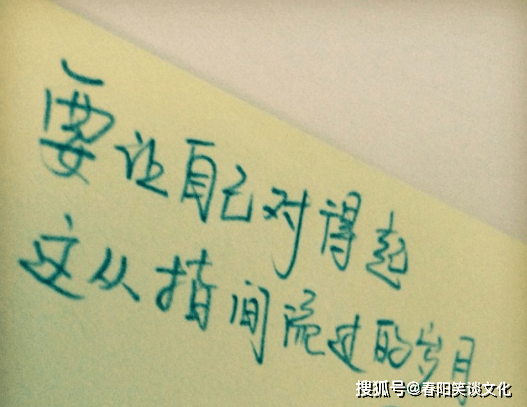 要让自己对得起
这从指间流过的岁月
搜狐号@春阳笑谈文化